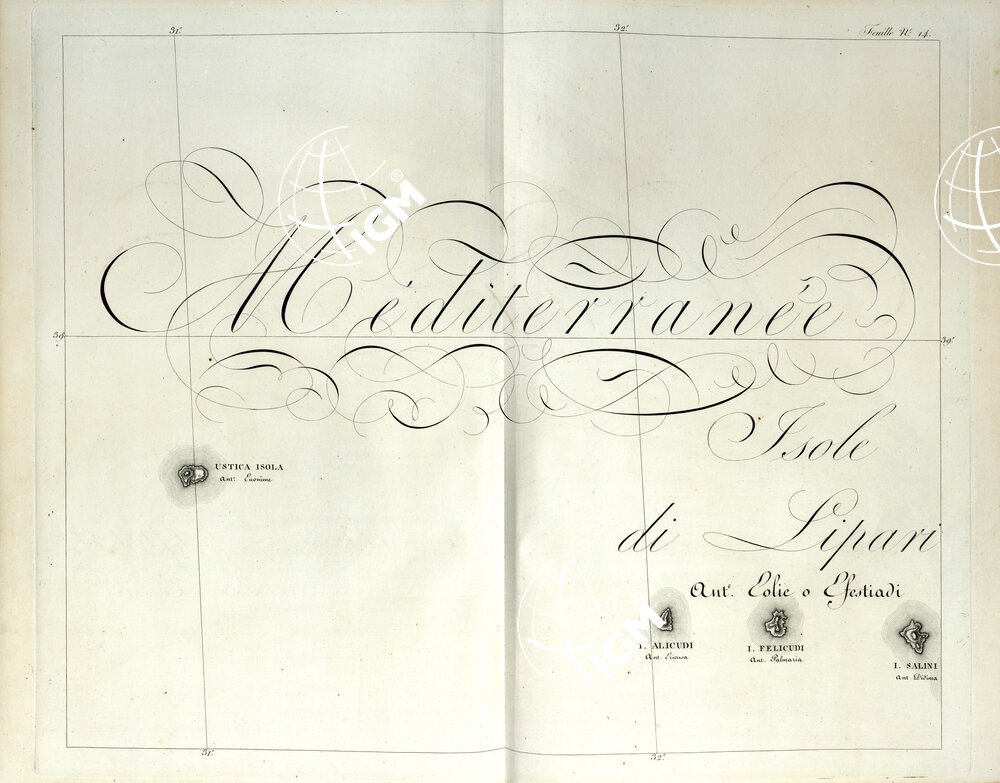 31.ᵈ
32.ᵈ
Feuille N.º 14.
IGM®
Méditerranée
39.ᵈ
39.ᵈ
Isole
USTICA ISOLA
Ant.ᵉ Euonime
di Lipari
Ant.ᵉ Eolie o Efestiadi
IGM
I. ALICUDI
Ant. Ericusa
I. FELICUDI
Ant. Palmaria
I. SALINI
Ant. Didima
31.ᵈ
32.ᵈ